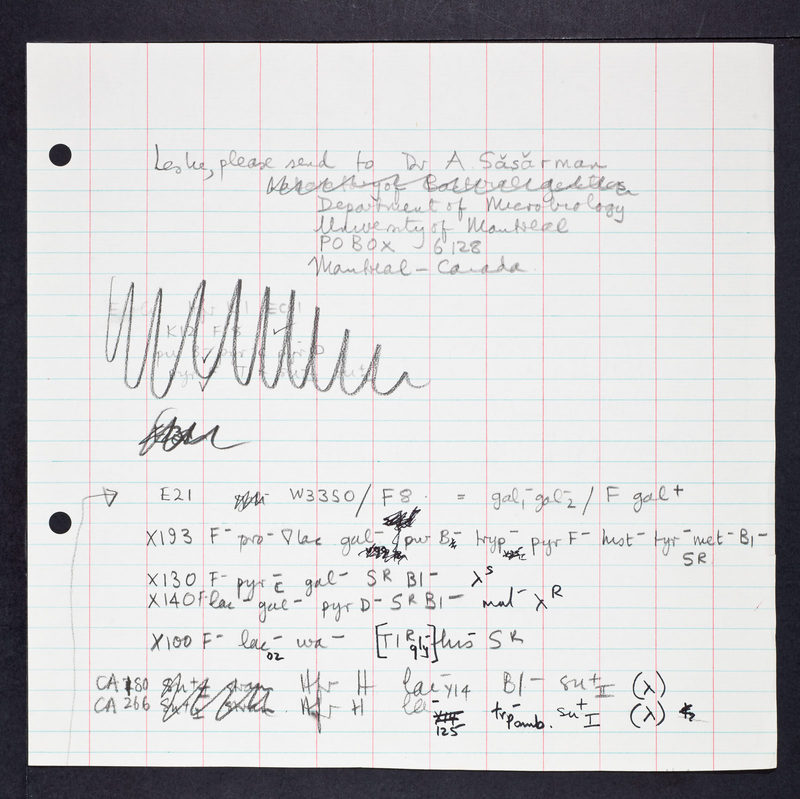 Leslie, please send to Dr A. Săsărman
Department of Microbiology
University of Montreal
PO BOX 6128
Montreal – Canada
K12 F8 ✓
E21 W3350 / F8 = gal1⁻ gal⁻2 / F gal⁺
X193 F⁻ pro⁻ ∇lac gal⁻ pur B⁻ tryp⁻ pyr F⁻ hist⁻ tyr⁻ met⁻ B1⁻
SR
X130 F⁻ pyr⁻C gal⁻ SR B1⁻ λˢ
X140 F⁻ lac⁻ gal⁻ pyr D⁻ SR B1⁻ mal⁻ λᴿ
X100 F⁻ lac⁻O2 [T1ᴿ gly⁻] his⁻ SR
CA 180 Hfr H lac⁻Y14 B1⁻ su⁺II (λ)
CA 266 Hfr H lac⁻125 trp⁻amb. su⁺I (λ)